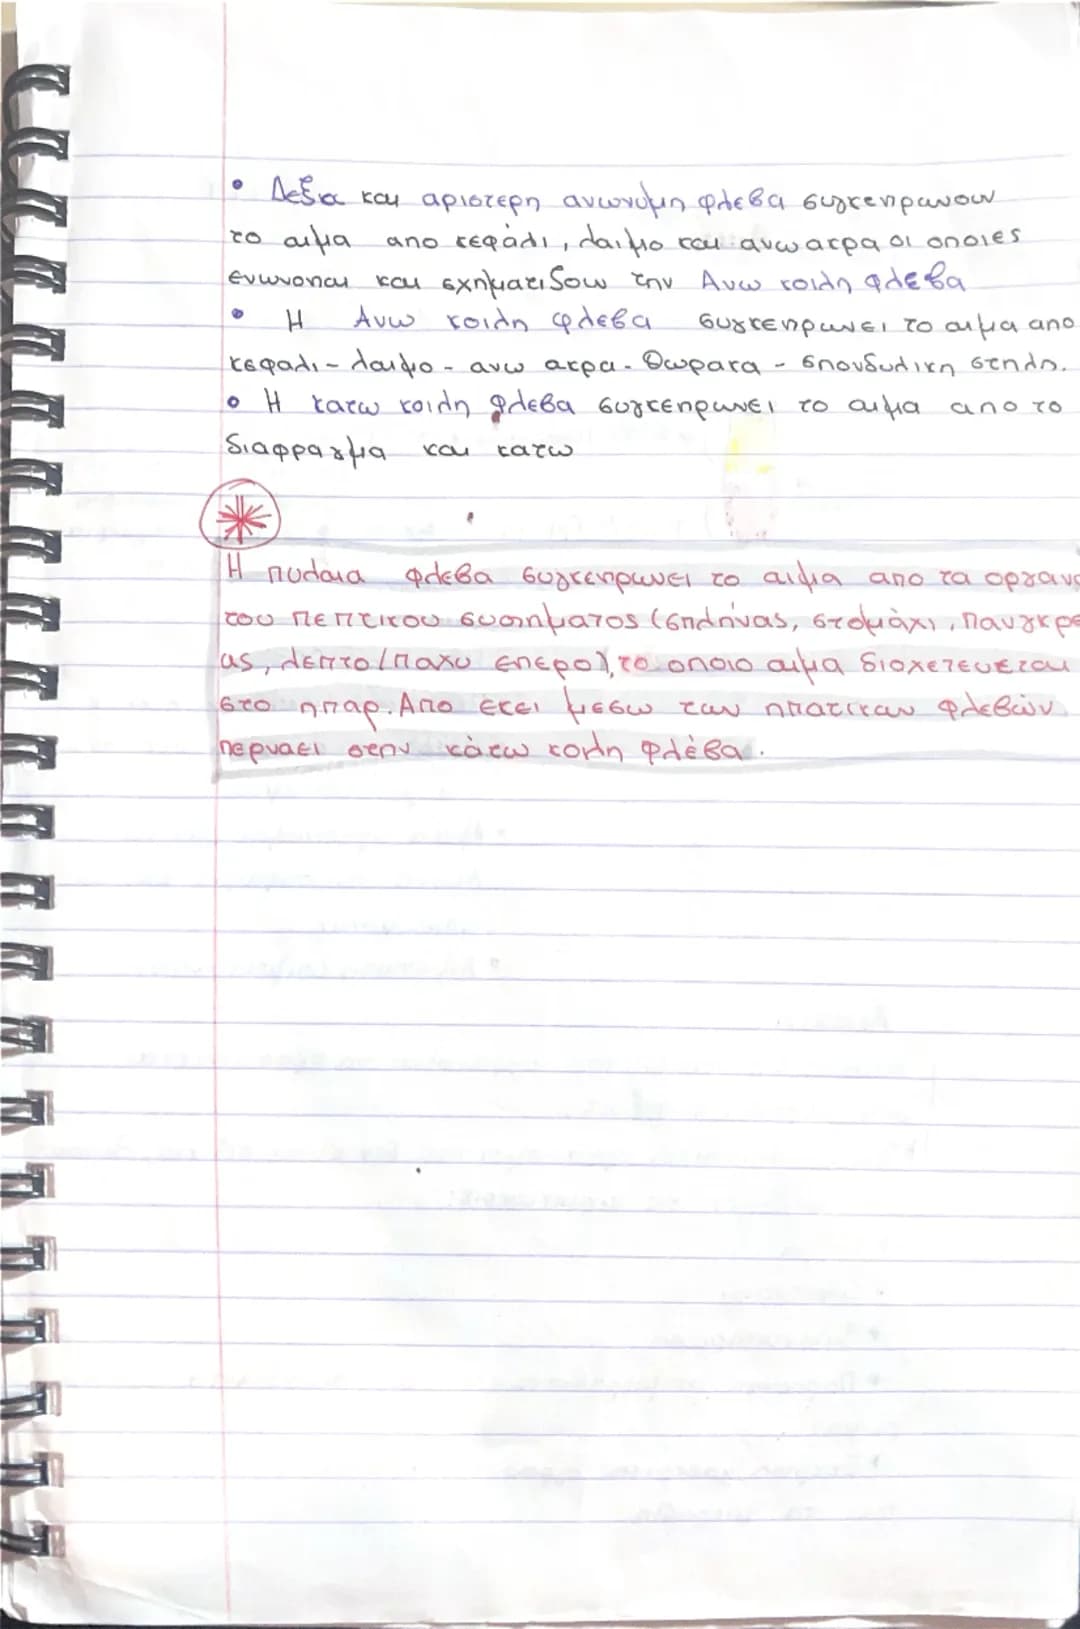 • Δεξια και αριστερη ανωνυμη φλεβα συγκεντρωνουν
το αιμα απο κεφάλι, λαιμο και ανω ακρα οι οποιες
ενωνονται και σχηματιζουν την Ανω κοιλη φλεβα
• Η Ανω κοιλη φλεβα συγκεντρωνει το αιμα απο
κεφαλι - λαιμο - ανω ακρα - Θωρακα - σπονδυλικη στηλη.
• Η κατω κοιλη φλεβα συγκεντρωνει το αιμα απο το
διαφραγμα και κατω
*
Η πυλαια φλεβα συγκεντρωνει το αιμα απο τα οργανα
του πεπτικου συστηματος (σπλήνας, στομάχι, παγκρε
ας, λεπτο/παχυ εντερο), το οποιο αιμα διοχετευεται
στο ηπαρ. Απο εκει μεσω των ηπατικων φλεβών
περναει στην κάτω κοιλη φλέβα.